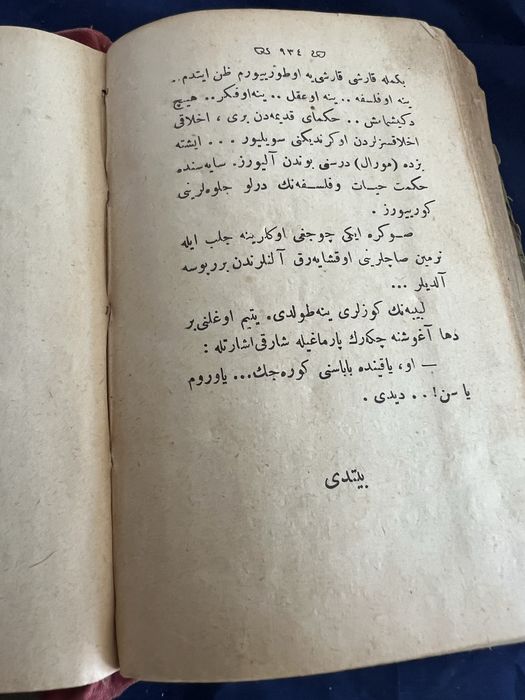 ٩٣٤
بكمله قارشى قارشى‌يه اوطورييورم ظن ايتدم..
ينه اوفلسفه .. ينه اوعقل .. ينه‌اوفكر .. هيچ
دكيشمامش .. حكماى قديمه‌دن برى ، اخلاقى
اخلاقسزلردن اوكرنديكنى سويليور ... ايشته
بزده (مورال) درسنى بوندن آليورز. سايه‌سنده
حكمت حيات وفلسفه‌نك درلو جلوه‌لرينى
كورييورز .
صوكره ايكى چوجغى اوكلرينه جلب ايله
نرمين صاچلرينى اوقشايه‌رق آلنلرندن بربوسه
آلديلر ...
لبيبه‌نك كوزلرى ينه‌طولدى. يتيم اوغلنى‌بر
دها آغوشنه چكه‌رك پارماغيله شارقى‌اشارتله :
— او، ياقينده باباسنى كوره‌جك... ياوروم
يا سن! .. ديدى .
بيتدى